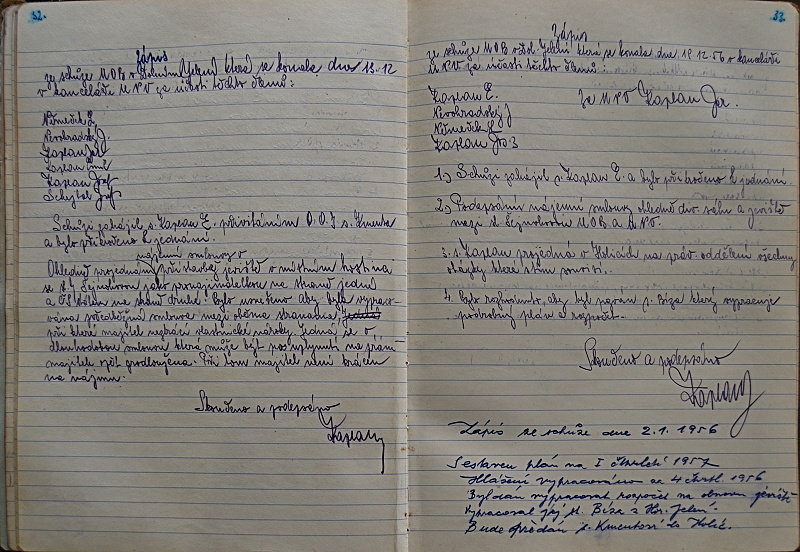 32.
Zápis
ze schůze MOB v Dolním Jelení která se konala dne 13.12
v kanceláři MNV za účasti těchto členů:
Němeček L
Novohradský J.
Kaplan
Kaplan Emil
Kaplan Josef
Schejbal Josef
Schůzi zahájil s. Kaplan E. přivítáním O.O.J s. Kmenta
a bylo přikročeno k jednání.
nájemní smlouvy o
Ohledně projednání při stavbě jeviště v místním hostinci
se st. Lejnohrovou jako pronajímatelkou na straně jedné
a na straně druhé, bylo usneseno aby byla vypraco-
vána předběžná smlouva mezi oběma stranama
při které majitel neztrácí vlastnické nároky. Jedná se o
dlouhodobou smlouvu která může být po uplynutí na přání
majitele opět prodloužena. Při tom majitel není krácen
na nájmu.
Skončeno a podepsáno
Kaplan
33.
Zápis
ze schůze MOB v Dol. Jelení která se konala dne 19.12.56 v kanceláři
MNV za účasti těchto členů:
Kaplan E. Za MNV Kaplan Jar.
Novohradský J
Němeček L
Kaplan Jos. 3
1.) Schůzi zahájil s. Kaplan E. a bylo přikročeno k jednání.
2.) Podepsání nájemní smlouvy ohledně div. sálu a jeviště
mezi st. Lejnohrovou MOB a MNV.
3. s. Kaplan projedná v Holicích na práv. oddělení všechny
otázky které s tím souvisí.
4. Bylo rozhodnuto, aby byl pozván s. Bíza který vypracuje
podrobný plán a rozpočet.
Skončeno a podepsáno
Kaplan
Zápis ze schůze dne 2.1.1956
Sestaven plán na I čtvrtletí 1957
Hlášení vypracováno za 4 čtvrtl. 1956
Byl dán vypracovat rozpočet na obnovu jeviště
vypracoval jej st. Bíza z Hor. Jelení.
Bude předán s. Kmentovi do Holic.